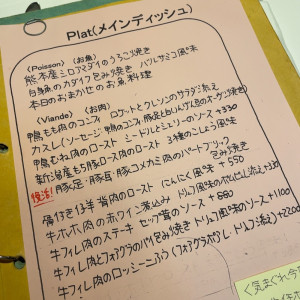 Plat(メインディッシュ)
(Poisson) (お魚)
熊本産シロアマダイのうろこ焼き
白身魚のカダイフ包み焼き バルサミコ風味
本日のおまかせのお魚料理
(Viande) (お肉)
鴨もも肉のコンフィ ロケットとクレソンのサラダ添え
カスレ(ソーセージ 鴨のコンフィ 豚肉と白いんげん豆のオーブン焼き) +330
鴨むね肉のロースト シードルとシェリーのソース
新潟産もち豚ロース肉のロースト 3種のこしょう風味
復活! 豚足・豚耳・豚コメカミ肉のパートブリック包み焼き
骨付き仔羊背肉のロースト にんにく風味 +550
牛ホホ肉の赤ワイン煮込み
牛フィレ肉のステーキ セップ茸のソース +880
牛フィレ肉とフォアグラのパイ包み焼き トリュフ風味のソース +1100
牛フィレ肉のロッシーニふう (フォアグラポワレ・トリュフ添え) +2200
<気まぐれ今